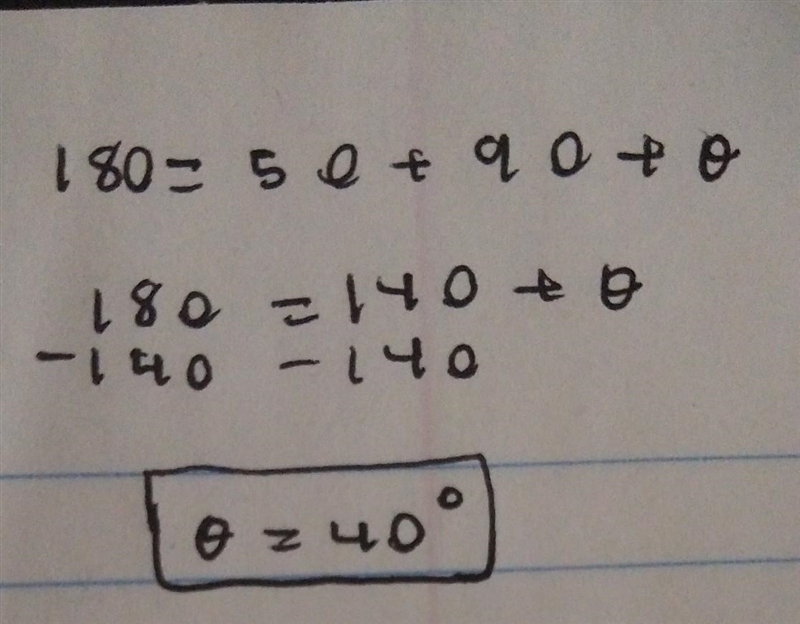 180 = 50 + 90 + θ
180 = 140 + θ
-140 -140
θ = 40°